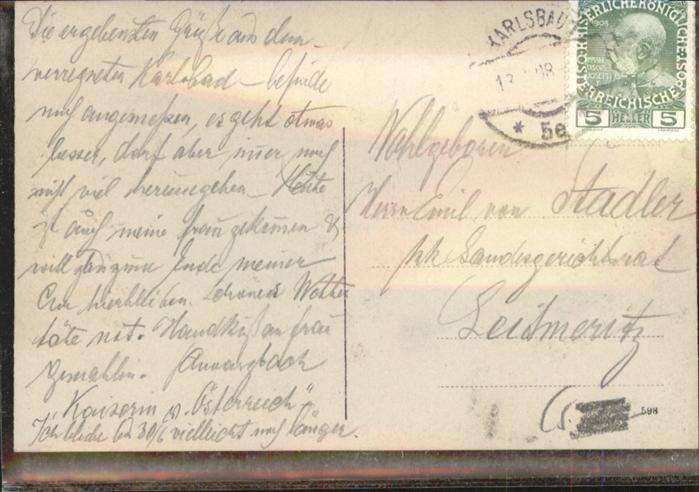 Die ergebensten Grüße aus dem
verregneten Karlsbad – befinde
mich angemessen, es geht etwas
besser, darf aber nur noch
nicht viel herumgehen – Heute
ist auch meine Frau gekommen &
will bis zum Ende meiner
Cur hierbleiben. Schönes Wetter
täte not. Handkuß an Frau
Gemahlin.
Kaiserin v. Österreich"
Ich bleibe bis 30/6 vielleicht noch länger.
KARLSBAD
* 5e
KAISERLICHE KÖNIGLICHE
ÖSTERREICHISCHE POST
1908
5 HELLER 5
Wohlgeboren
Herrn Emil von Stadler
kk Landesgerichtsrat
Leitmeritz
598